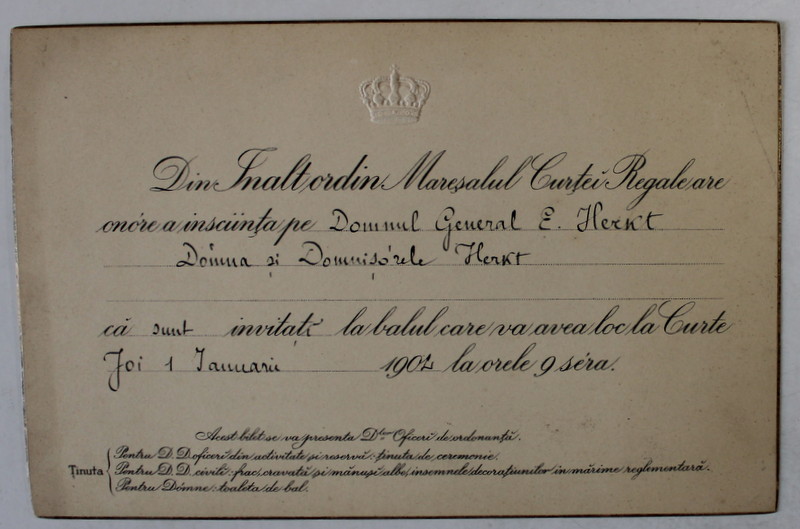 Din Inalt ordin Mareșalul Curței Regale are
onóre a insciința pe Domnul General E. Herkt
Dómna și Domnișórele Herkt
că sunt invitați la balul care va avea loc la Curte
Joi 1 Ianuarii 1904 la orele 9 séra.
Acest bilet se va presenta D-lui Oficeri de ordonanță.
Ținuta
Pentru D. D. oficeri din activitate și reservă: ținuta de ceremonie.
Pentru D. D. civili: frac, cravată și mănuși albe, insemnele decorațiunilor in mărime reglementară.
Pentru Dómne: toaleta de bal.